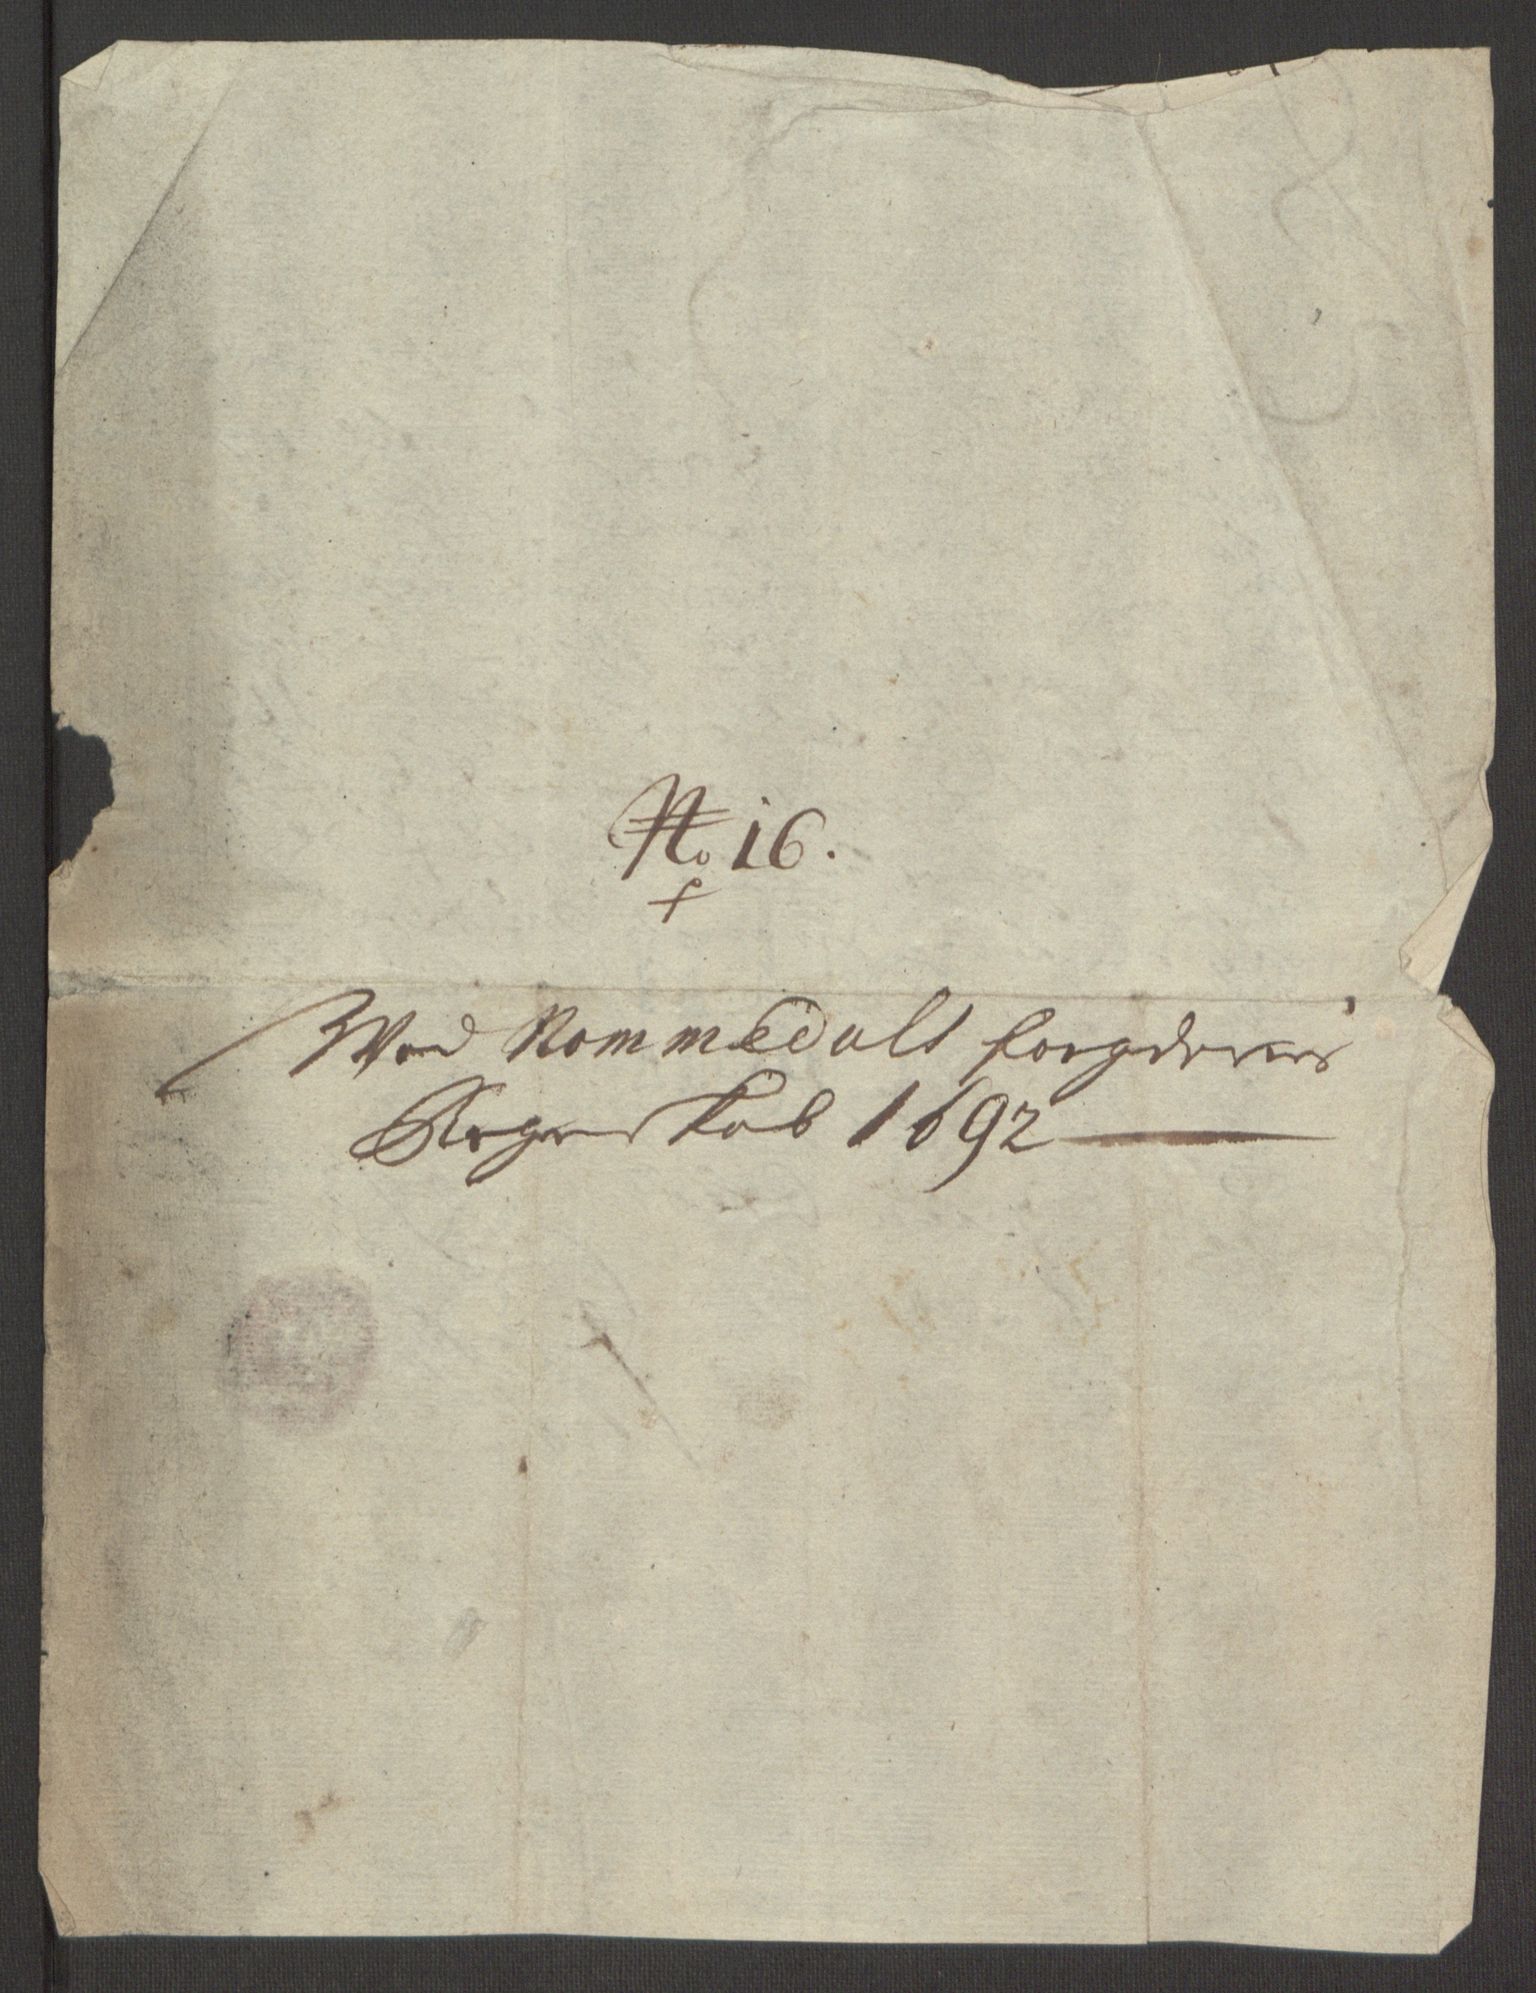 No 16.
Wed Nommedals fougderies
Regenskab 1692